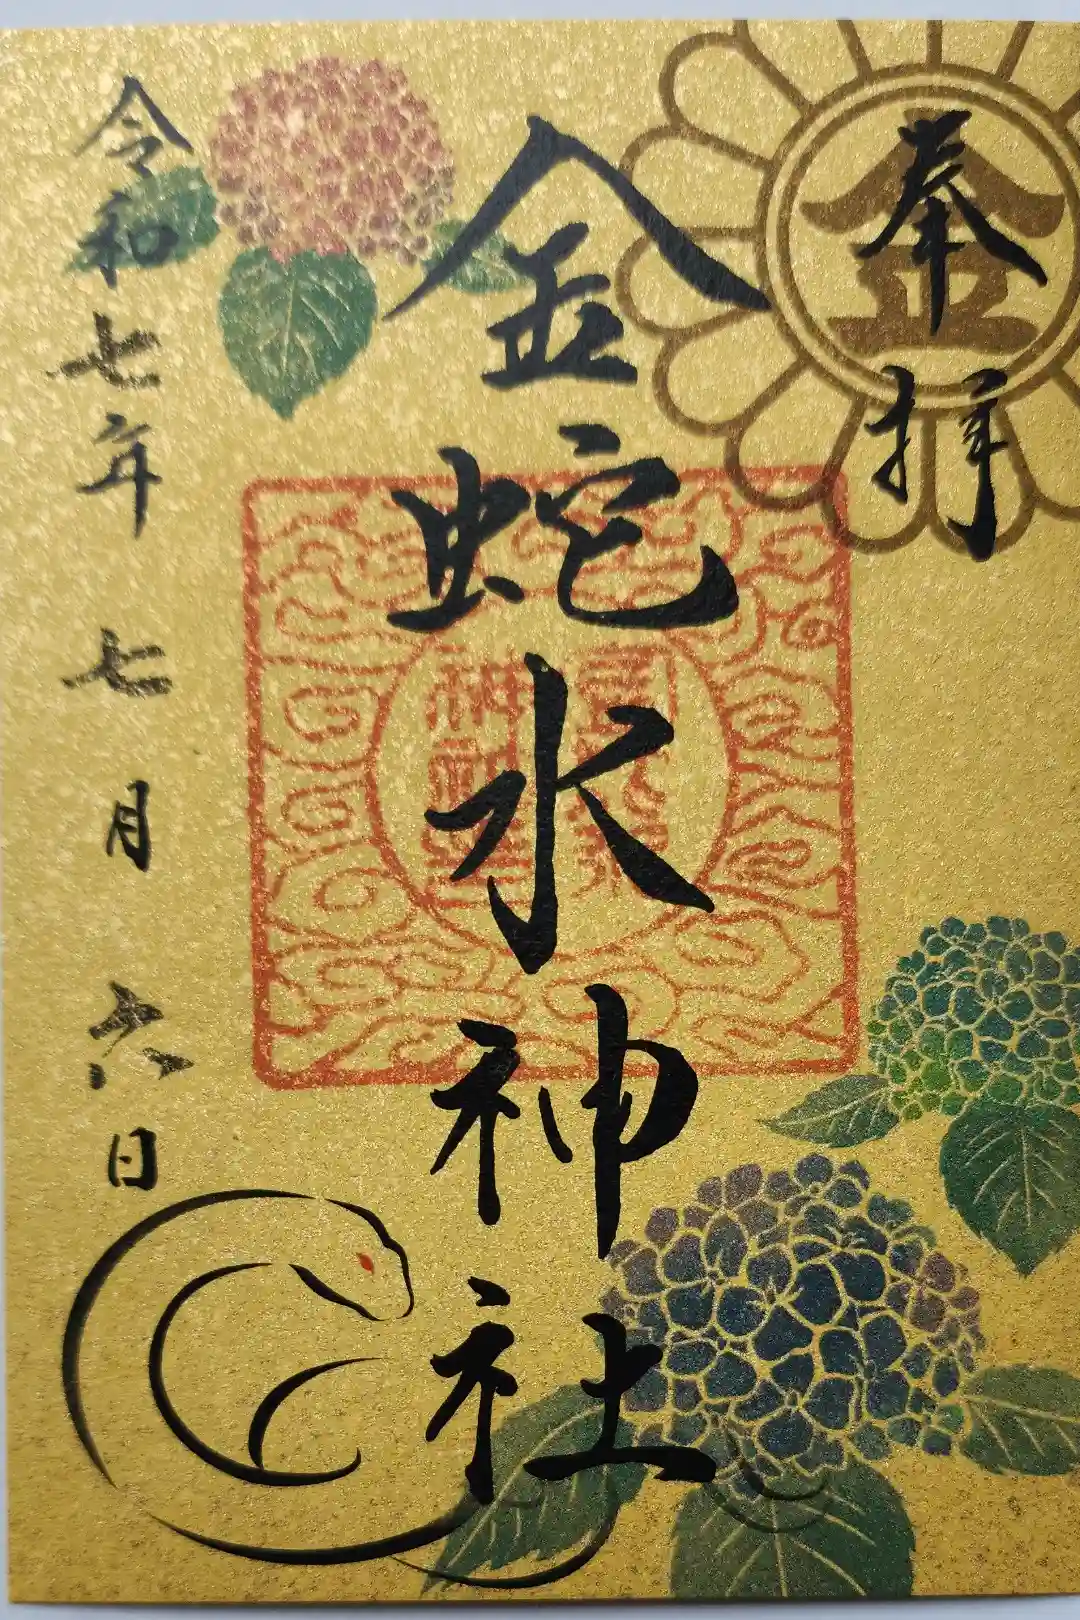 奉拝
金
金蛇水神社
令和七年七月六日